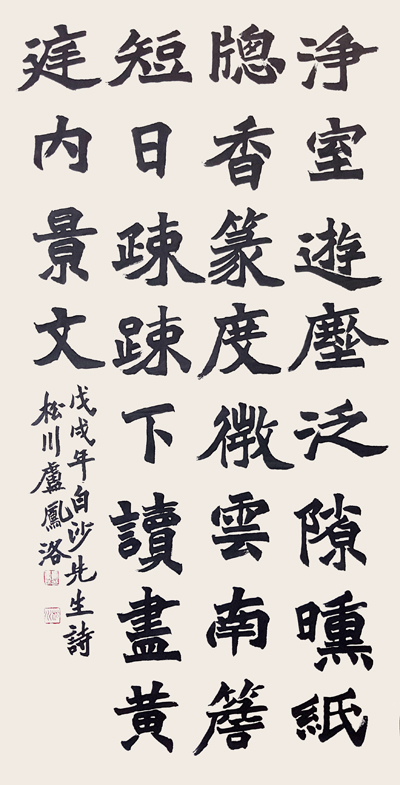 淨室遊塵泛隙曛紙
牕香篆度微雲南簷
短日踈踈下讀盡黄
庭内景文
戊戌年白沙先生詩
松川盧鳳洛